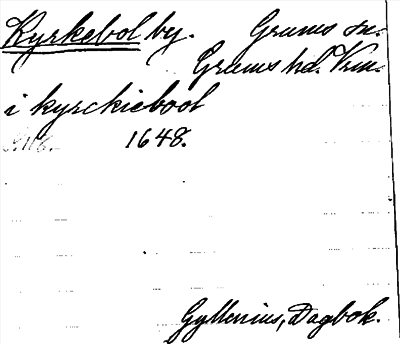 Kyrkebol by. Grums sn.
Grums hd. Vrm.
i kyrckiebool
1648.
Gyllenius, Dagbok.